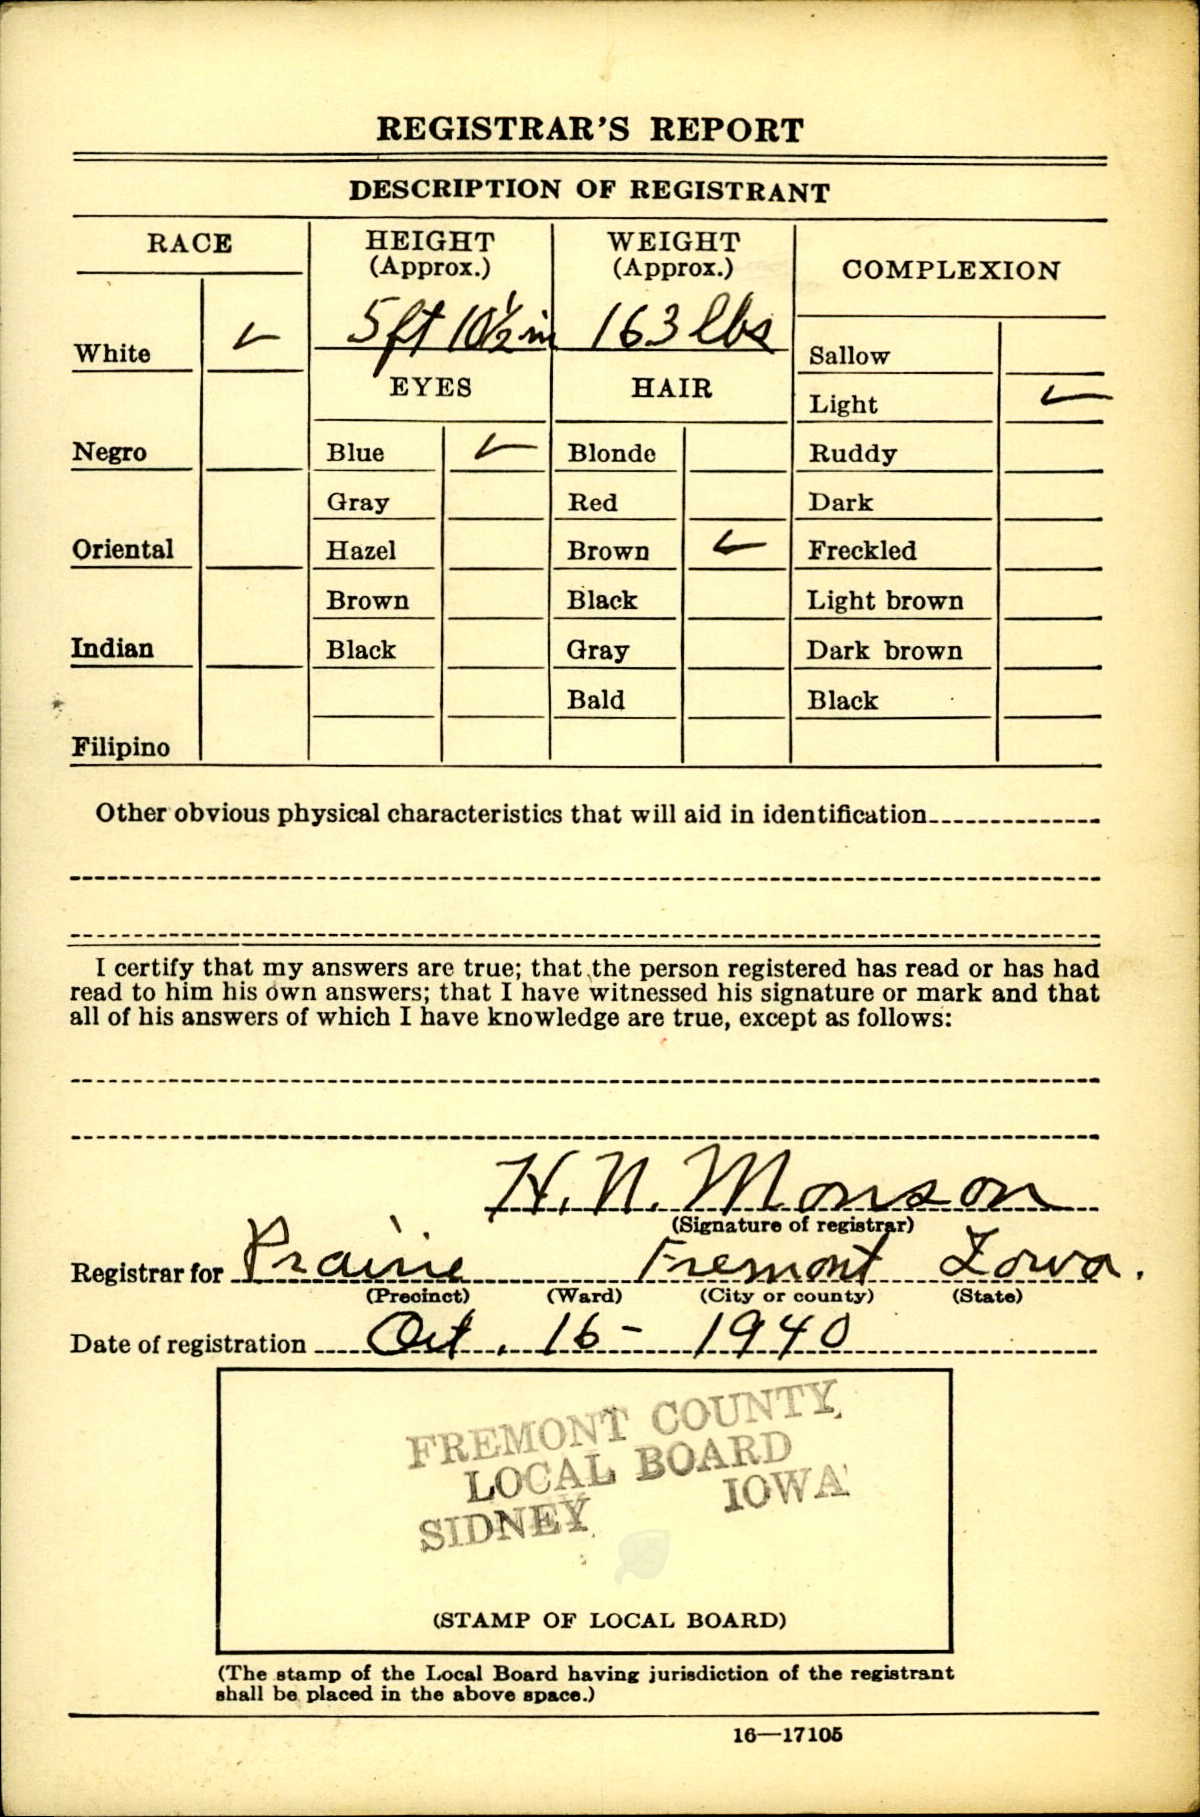 REGISTRAR'S REPORT
DESCRIPTION OF REGISTRANT
RACE
HEIGHT
(Approx.)
WEIGHT
(Approx.)
COMPLEXION
5 ft 10½ in
163 lbs
White ✓
Sallow
EYES
HAIR
Light ✓
Negro
Blue ✓
Blonde
Ruddy
Gray
Red
Dark
Oriental
Hazel
Brown ✓
Freckled
Brown
Black
Light brown
Indian
Black
Gray
Dark brown
Bald
Black
Filipino
Other obvious physical characteristics that will aid in identification
I certify that my answers are true; that the person registered has read or has had
read to him his own answers; that I have witnessed his signature or mark and that
all of his answers of which I have knowledge are true, except as follows:
H. N. Monson
(Signature of registrar)
Registrar for Prairie Fremont Iowa.
(Precinct) (Ward) (City or county) (State)
Date of registration Oct. 16 - 1940
FREMONT COUNTY
LOCAL BOARD
SIDNEY IOWA
(STAMP OF LOCAL BOARD)
(The stamp of the Local Board having jurisdiction of the registrant
shall be placed in the above space.)
16—17105